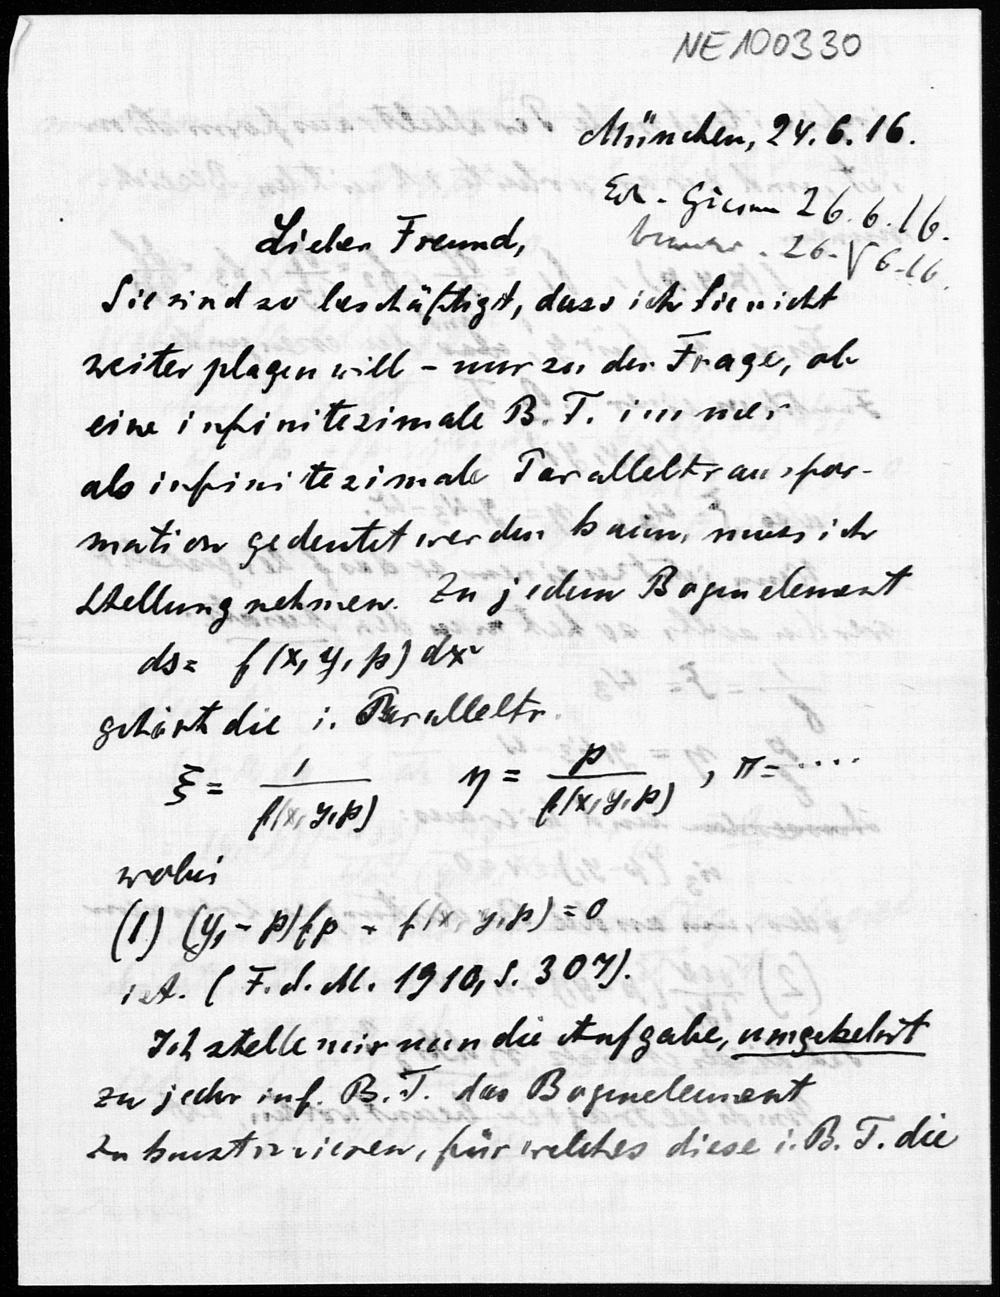 NE100330
München, 24.6.16.
Erh. Giessen 26.6.16.
26. V 6.16.
Lieber Freund,
Sie sind so beschäftigt, dass ich Sie nicht
weiter plagen will – nur zu der Frage, ob
eine infinitesimale B. T. immer
als infinitesimale Paralleltransfor-
mation gedeutet werden kann, muss ich
Stellung nehmen. Zu jedem Bogenelement
ds = f(x, y, p) dx
gehört die i. Paralleltr.
ξ = 1/f(x, y, p) η = p/f(x, y, p) , π = ....
wobei
(1) (y₁ - p) fp + f(x, y, p) = 0
ist. (F. d. M. 1910, S. 307).
Ich stelle mir nun die Aufgabe, umgekehrt
zu jeder inf. B. T. das Bogenelement
zu konstruieren, für welches diese i. B. T. die